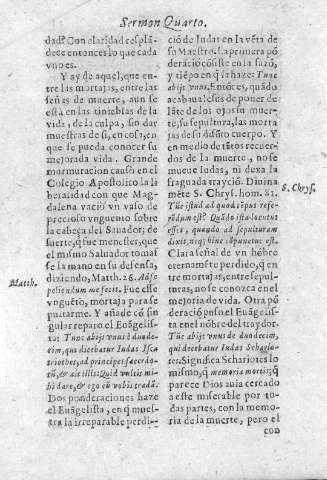 Sermon Quarto.
dad? Con claridad resplã-
dece entonces lo que cada
vno es.
Y ay de aquel, que en-
tre las mortajas, entre las
señas de muerte, aun se
esta en las tinieblas de la
vida, de la culpa, sin dar
muestras de si, en cosa, en
que se pueda conocer su
mejorada vida. Grande
murmuracion causò en el
Colegio Apostolico la li-
beralidad con que Mag-
dalena vaciò vn vaso de
precioso vnguento sobre
la cabeça del Sauador; de
suerte, q̃ fue menester, que
el mismo Saluador tomas
se la mano en su defensa,
diziendo, Matth. 26. Ad se-
peliendum me fecit. Fue esse
vnguẽto, mortaja para se-
pultarme. Y añade cõ sin-
gular reparo el Euãgelis-
ta: Tunc abijt vnus è duode-
cim, qui dicebatur Iudas Isca
riothes, ad principes sacerdo-
tũ, & ait illis: Quid vultis mi-
hi dare, & ego eũ vobis tradã?
Dos ponderaciones haze
el Euãgelista, en q̃ mues-
tra la irreparable perdi-
Matth.
ciõ de Iudas en la vẽta de
su Maestro. La primera põ
deraciõ consiste en la sazõ,
y tiẽpo en q̃ la haze: Tunc
abijt vnus. Entõces, quãdo
acabaua Iesus de poner de
lãte de los ojos su muer-
te, su sepultura, las morta
jas de su difũto cuerpo. Y
en medio de tãtos recuer-
dos de la muerte, no se
mueue Iudas, ni dexa la
fraguada trayciõ, Diuina
mẽte S. Chrys. hom. 81.
Tũc istud ad quod tẽpus refe-
rẽdum est? Quãdo ista locutus
est, quando ad sepulturam
dixit, neq; hinc cõpunctus est.
Clara señal de vn hõbre
eternamẽte perdido, q̃ en
tre mortajas, entre sepul-
turas, no se conozca en el
mejoria de vida. Otra põ
deraciõ puso el Euãgelis-
ta en el nõbre del traydor.
Tũc abijt vnus de duodecim,
qui dicebatur Iudas Schario-
tes: Significa Schariotes lo
mismo, q̃ memoria mortis; q̃
parece Dios auia cercado
a este miserable por to-
das partes, con la memo-
ria de la muerte, pero el
con
S. Chrys.